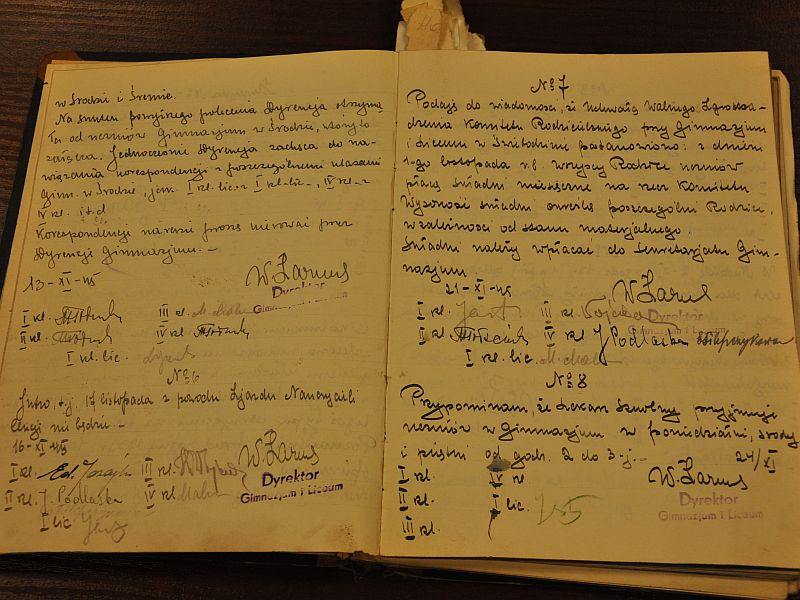 w Środzie i Śremie.
Na skutek powyższego polecenia Dyrekcja otrzyma-
ła od uczniów Gimnazjum w Środzie, które to
załącza. Jednocześnie Dyrekcja zachęca do na-
wiązania korespondencji z poszczególnemi klasami
Gimn. w Środzie, jak I kl. lic. z I kl. lic., IV kl. z
IV kl. i t.d
Korespondencji na razie proszę kierować przez
Dyrekcję Gimnazjum. -
13-XI-45
W. Larus
Dyrektor
Gimnazjum i Liceum
I kl. III kl.
II kl. IV kl.
I kl. lic.
No 6
Jutro, t.j. 17 listopada z powodu Zjazdu Nauczycieli
lekcji nie będzie. -
16-XI-45
W. Larus
Dyrektor
Gimnazjum i Liceum
I kl. III kl.
II kl. J. Podlaska IV kl.
I lic.
No 7
Podaję do wiadomości, że Uchwałą Walnego Zgroma-
dzenia Komitetu Rodzicielskiego przy Gimnazjum
i Liceum w postanowiono: z dniem
1-go listopada r.b. wszyscy Rodzice uczniów
płacą składki miesięczne na rzecz Komitetu
Wysokość składki określą poszczególni Rodzice,
w zależności od stanu materjalnego.
Składki należy wpłacać do Sekretarjatu Gim-
nazjum.
21-XI-45
W. Larus
Dyrektor
Gimnazjum i Liceum
I kl. III kl.
II kl. IV kl. J. Podlaska
I kl. lic.
No 8
Przypominam, że Lekarz Szkolny przyjmuje
uczniów w Gimnazjum w poniedziałki, środy
i piątki od godz. 2 do 3-j. - 24/XI
W. Larus
Dyrektor
Gimnazjum i Liceum
I kl. IV kl
II kl. I lic.
III kl.